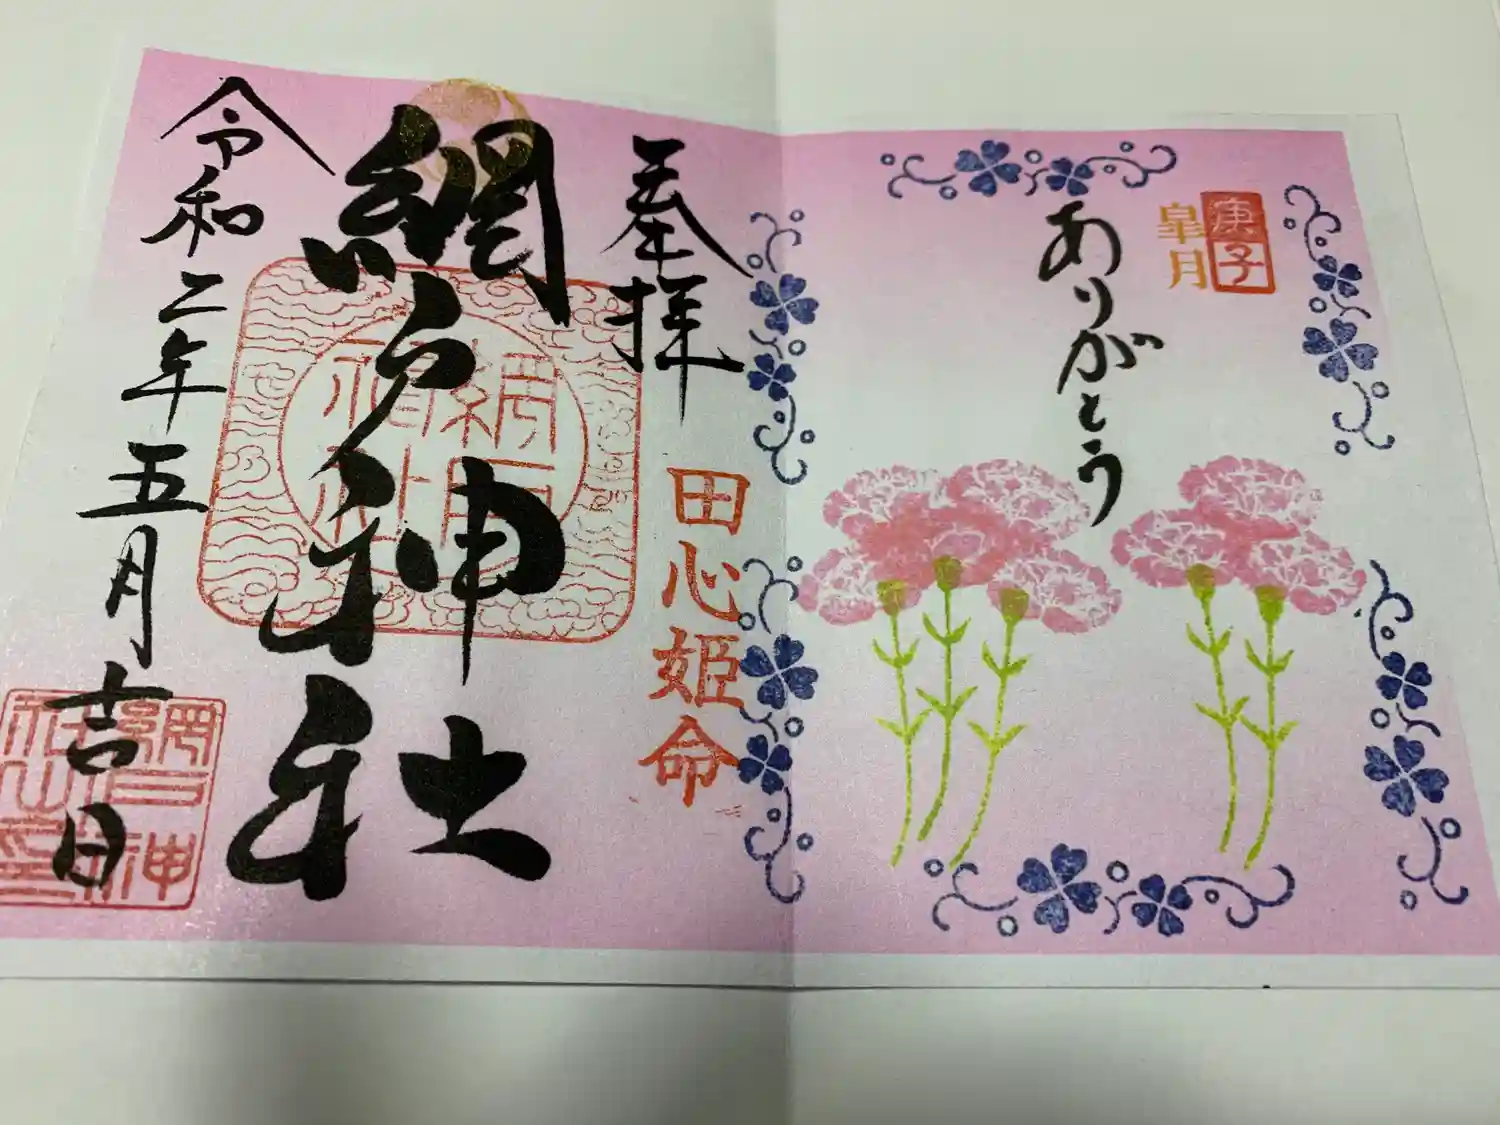 庚子
皐月
ありがとう
奉拝
田心姫命
網戸神社
網戸神社
令和二年五月吉日